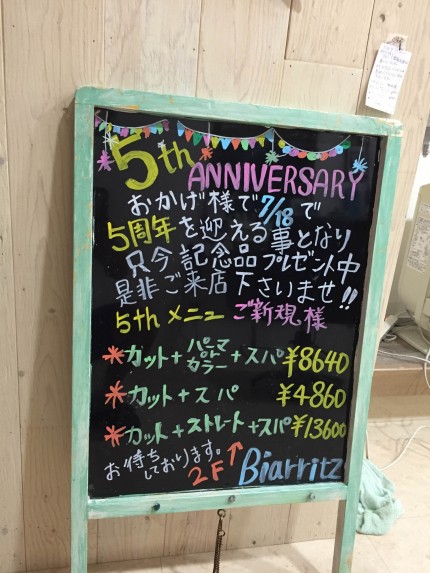 5th
ANNIVERSARY
おかげ様で7/18で
5周年を迎える事となり
只今記念品プレゼント中
是非ご来店下さいませ!!
5thメニュー ご新規様
*カット+パーマorカラー+スパ ¥8640
*カット+スパ ¥4860
*カット+ストレート+スパ ¥13600
お待ち
しております。
2F↑ Biarritz